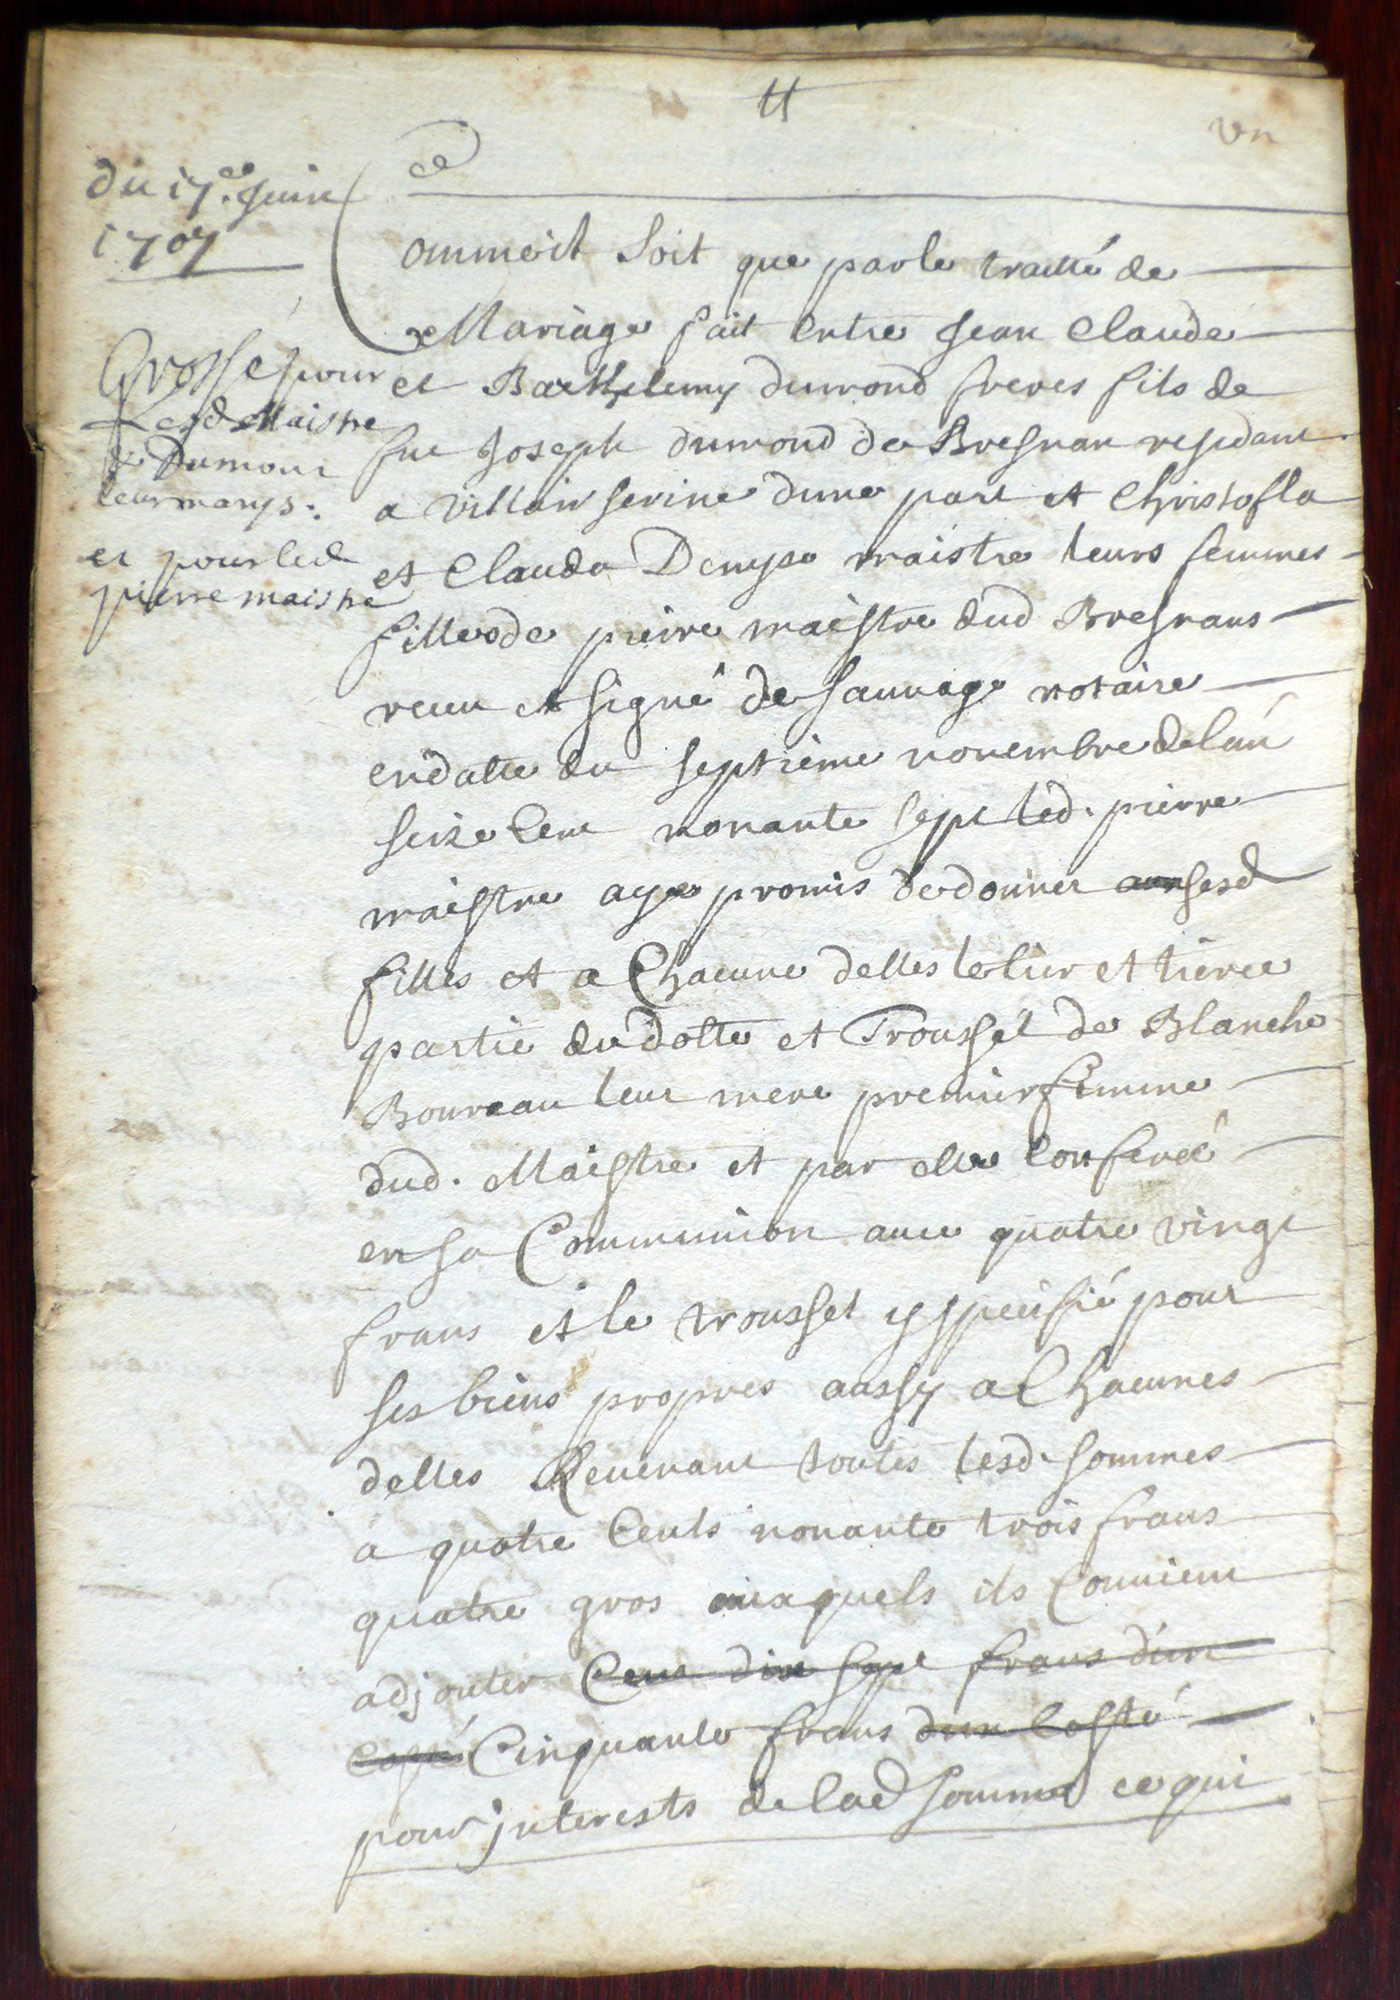 vn
du 17.e Juin
1707
Grosse pour
Lesd Maistre
& Dumont
leurs marys.
et pour led
pierre maistre
Commeil Soit que par le traitté de
Mariage fait entre Jean Claude
et Barthelemy dumond freres fils de
fut Joseph dumond de Bresnan residant
a Villair serine dune part et Christofla
et Clauda Denyse maistre leurs femmes
filles de pierre maistre dud Bresnans
receu et signé de Sauuage notaire
en datte du septieme nouembre de lan
seize Cent nonante sept led. pierre
maistre aye promis de donner aux sesd
filles et a Chacune delles le tier et tierce
partie du dotte et Troussel de Blanche
Bourreau leur mere premier femme
dud. Maistre et par elle Conferée
en sa Communion auec quatre vingt
frans et le troussel y specifié pour
ses biens propres aussy a Chacunes
delles Reuenant toutes lesd. sommes
a quatre Cents nonante trois frans
quatre gros auxquels ils Conuient
adjouter Cent dix sept frans d'un
Costé Cinquante frans d'un Costé
pour jnterests de lad somme ce qui